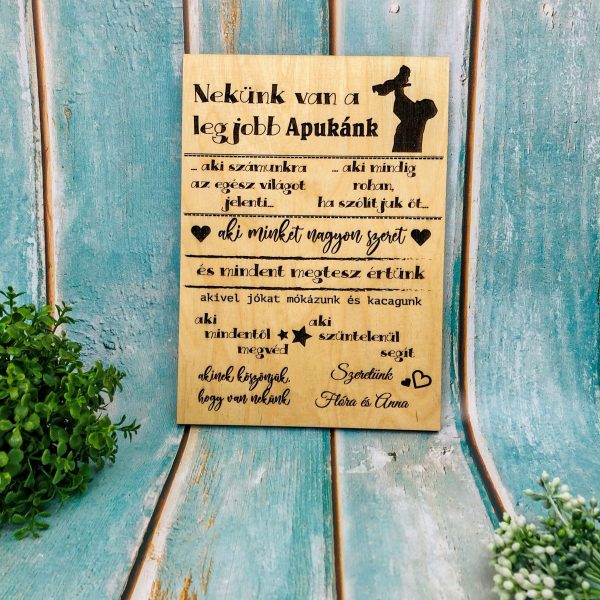 Nekünk van a
legjobb Apukánk
... aki számunkra
az egész világot
jelenti...
... aki mindig
rohan,
ha szólítjuk őt...
aki minket nagyon szeret
és mindent megtesz értünk
akivel jókat mókázunk és kacagunk
aki
mindentől
megvéd
aki
szüntelenül
segít
akinek köszönjük,
hogy van nekünk
Szeretünk
Flóra és Anna